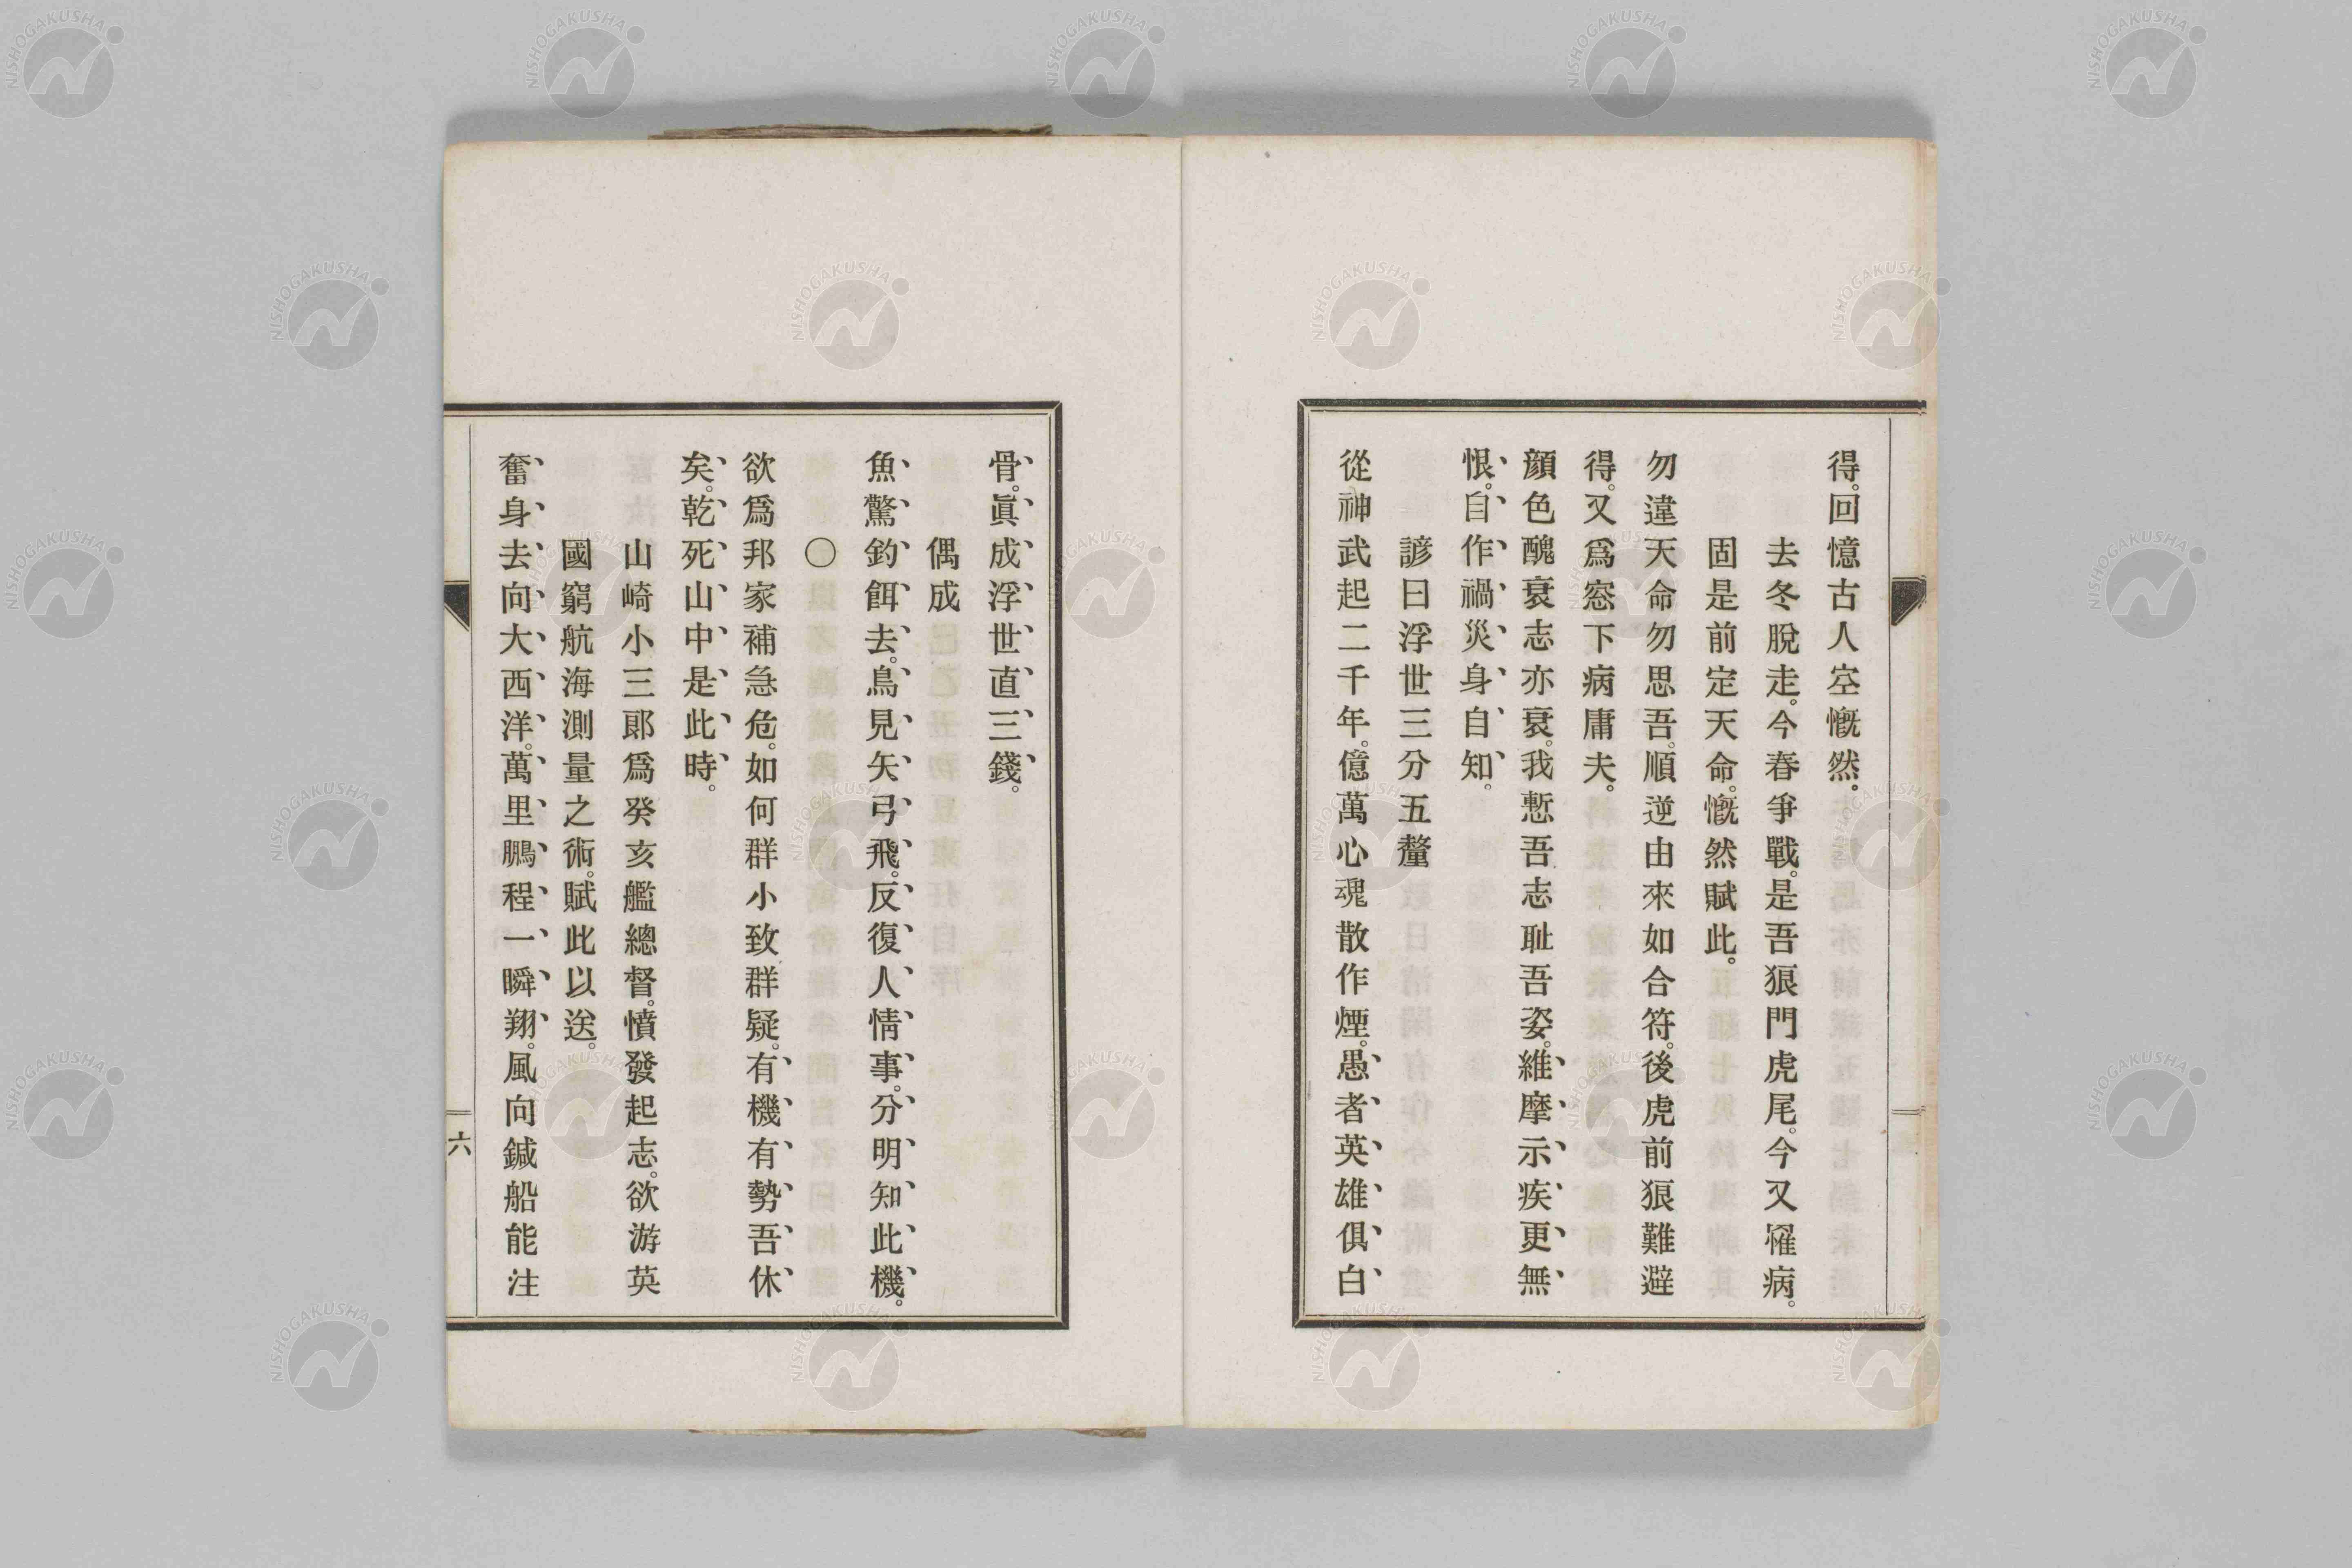 得。回憶古人空慨然。
去冬脫走。今春爭戰。是吾狼門虎尾。今又罹病。
固是前定天命。慨然賦此。
勿違天命勿思吾。順逆由來如合符。後虎前狼難避
得。又爲窓下病庸夫。
顏色醜衰志亦衰。我慙吾志耻吾姿。維摩示疾更無
恨。自作禍災身自知。
諺曰浮世三分五釐
從神武起二千年。億萬心魂散作煙。愚者英雄俱白
骨。眞成浮世直三錢。
偶成
魚驚釣餌去。鳥見矢弓飛。反復人情事。分明知此機。
〇
欲爲邦家補急危。如何群小致群疑。有機有勢吾休
矣。乾死山中是此時。
山崎小三郞爲癸亥艦總督。憤發起志。欲游英
國窮航海測量之術。賦此以送。
奮身去向大西洋。萬里鵬程一瞬翔。風向鍼船能注
六
NISHOGAKUSHA